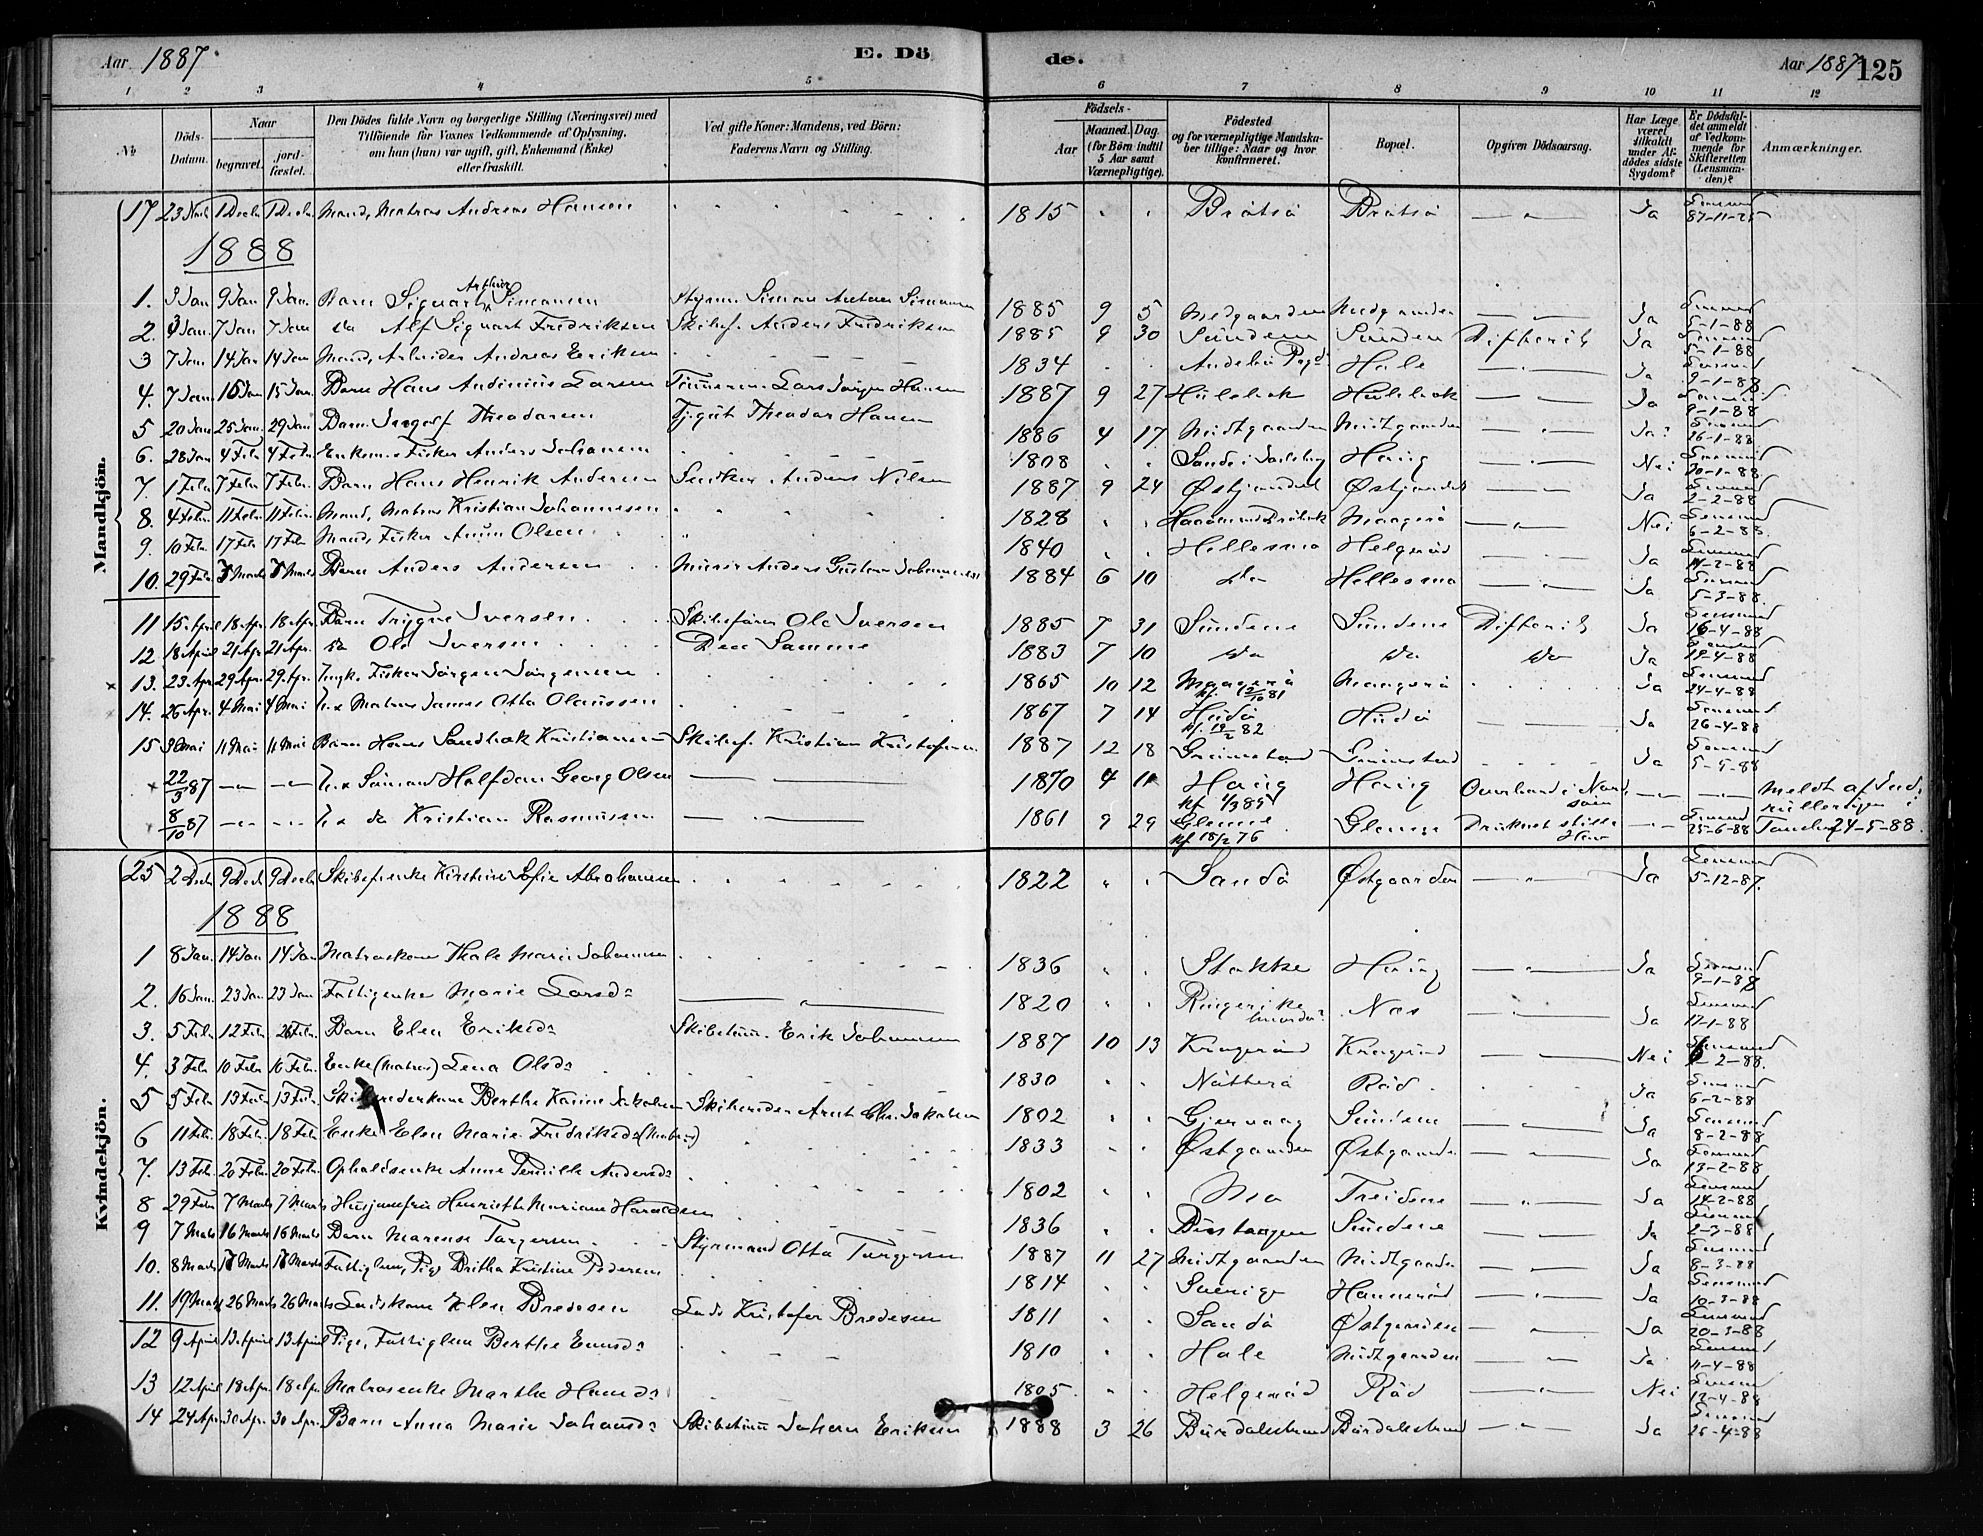 Aar 1887. E. Dö de. Aar 1887 125
1 2 3 4 5 6 7 8 9 10 11 12
№ Döds-Datum. Naar begravet. jord-fæstet. Den Dödes fulde Navn og borgerlige Stilling (Næringsvei) med Tilföiende for Voxnes Vedkommende af Oplysning, om han (hun) var ugift, gift, Enkemand (Enke) eller fraskilt. Ved gifte Koner: Mandens, ved Börn: Faderens Navn og Stilling. Födsels- Aar Maaned. Dag. (for Börn indtil 5 Aar samt Værnepligtige). Födested og for værnepligtige Mandskaber tillige: Naar og hvor konfirmeret. Bopæl. Opgiven Dödsaarsag. Har Læge været tilkaldt under Afdödes sidste Sygdom? Er Dödsfaldet anmeldt af Vedkommende for Skifteretten (Lensmanden)? Anmærkninger.
Mandkjön.
17 23 Novb 1 Decbr 1 Decbr. Mand, Matros Andreas Hansen 1815 Bråtsö Bråtsö Ja 87-11-25
1888
1. 3 Jan 9 Jan 9 Jan. Barn Sigvart Arthur Simonsen Styrm. Simon Simonsen 1885 9 5 Medgaarden Medgaarden Ja 5-1-88
2. 3 Jan. 7 Jan 7 Jan do Alf Sigvart Fredriksen Skibsf. Anders Fredriksen 1885 9 30 Sundene Sunden Difterit Ja 5-1-88
3 7 Jan 14 Jan 14 Jan Mand, Arbeider Andreas Eriksen 1834 Andebu Hale Ja 9-1-88
4. 7 Jan 15 Jan 15 Jan. Barn Hans Andinius Larsen Tömmerm. Lars Jörgen Hansen 1887 9 27 Hulebak Hulebak Ja 9-1-88
5 20 Jan 25 Jan. 29 Jan Barn Ingolf Theodorsen Theodor Hansen 1886 4 17 Midtgaarden Midtgaarden Ja 26-1-88
6. 28 Jan 4 Febr 4 Febr. Enkem. Fisker Anders Johansen 1808 Sande i Jarlsberg Nei
7. 1 Febr 7 Febr. 7 Febr. Barn Hans Henrik Andersen Snedker Anders Nilsen 1887 9 24 Ja 2-2-88
8. 4 Febr. 11 Febr. 11 Febr. Mand, Matros Kristian Johannesen 1828 Maagerö Nei 6-2-88.
9. 10 Febr 17 Febr 17 Febr Mand, Fisker Olsen 1840 Hellesmo Helgeröd Ja 14-2-88
10. 29 Febr. 5 Marts 5 Marts Barn Anders Andersen Anders Gustav Johannesen 1884 6 10 do Hellesmo Ja 5-3-88.
11 15 April 18 Apr. 18 Apr. Barn Trygve Iversen Skibsförer Ole Iversen 1885 7 31 Sundene Sundene Difterit Ja 16-4-88
12 18 April 21 Apr 21 Apr. do Ole Iversen Den Samme 1883 7 10 do do do Ja 19-4-88
× 13. 23 Apr 29 Apr. 29 Apr. Ungk. Fisker Jörgen Jörgensen 1865 10 12 Maagerö kf. 81 Maagerö Ja 24-4-88
14. 26 Apr. 4 Mai 4 Mai Matros James Otto Olaussen 1867 7 14 Hudö kf. 82 Hudö Ja 26-4-88
15 3 Mai 11 Mai 11 Mai Barn Hans Kristiansen Skibsf. Kristian Kristofersen 1887 12 18 Grimestad Grimestad Ja 5-5-88
× 22/3 87 Sömand Halfdan Georg Olsen 1870 4 11 Meldt af
8/10 87 do Kristian Rasmussen 1861 9 29 Glenne kf. 18/2 76 Glenne Druknet stille 25-6-88 24-5-88.
Kvindekjön.
25 2 Decbr 9 Decbr 9 Decbr Skibsf.enke Kirstine Sofie Abrahamsen 1822 Sandö Östgaarden Ja 5-12-87.
1888
1 8 Jan. 14 Jan 14 Jan Matroskone Thale Marie Johannesen 1836 Stokke Ja 9-1-88
2. 16 Jan. 23 Jan 23 Jan Fattigenke Marie Larsdr 1820 Ringerike Næs Ja 17-1-88
3. 5 Febr. 12 Febr. 26 Febr. Barn Elen Eriksdr Skibstöm. Erik Johansen 1887 10 13 Krageröd Krageröd Nei 6-2-88.
4. 3 Febr 10 Febr 16 Febr. Enke (Matros) Lena Olsdr 1830 Nötterö Röd Ja 6-2-88
5 5 Febr. 13 Febr. 13 Febr. Skibsrederkone Berthe Karine Jakobsen Skibsreder Arnt Chr. Jakobsen 1802 Gjervaag Sundene Ja 8-2-88
6 11 Febr. 18 Febr. 18 Febr. Enke Elen Marie Fredriksdr (Matros) 1833 Östgaarden Östgaarden Ja 13-2-88
7. 13 Feb. 20 Febr 20 Febr. Opholdsenke Anne Pernille Andersdr 1802 Mo Treidene Ja 14-2-88
8 29 Febr 7 Marts 7 Marts Husjomfru Henriette Mariane Haraldsen 1836 Sundene Ja 2-3-88
9 7 Marts 16 Marts 16 Marts Barn Marense Torgersen Styrmand Otto Torgersen 1887 11 27 Midtgaarden Midtgaarden Ja 8-3-88
10. 8 Marts 17 Marts 17 Marts Fattiglem, Pige Britha Kristine Pedersen 1814 Sverige Hanneröd Ja 10-3-88
11. 19 Marts 26 Marts 26 Marts Lodskone Elen Bredesen Lods Kristofer Bredesen 1811 Sandö Östgaarden Ja 20-3-88
12 9 April 13 April 13 April Pige, Fattiglem Berthe Evensdr 1810 Hale Midtgaarden Ja 11-4-88
13 12 April 18 Apr. 18 Apr. Matrosenke Marthe Hansdr 1805 Helgeröd Röd Nei 13-4-88
14 24 Apr 30 Apr. 30 Apr. Barn Anna Marie Johansdr Skibstöm Johan Eriksen 1888 3 26 Burdalsstrand Burdalsstrand Ja 25-4-88